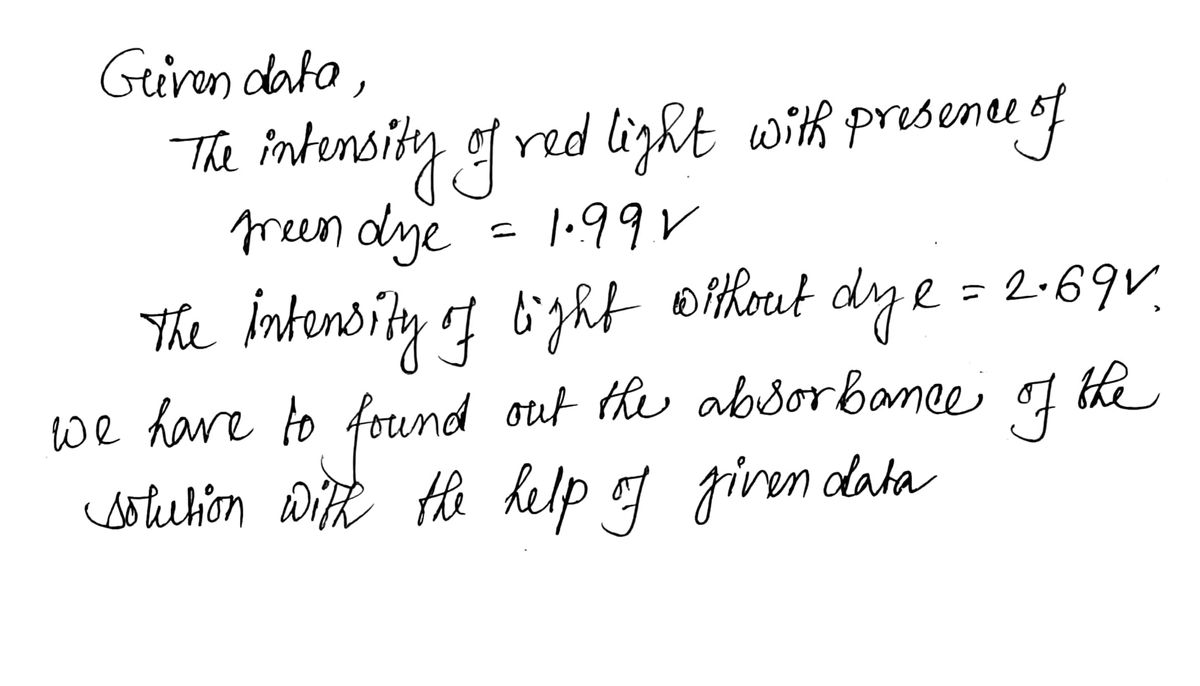 Given data,
The intensity of red light with presence of
green dye = 1.99 V
The intensity of light without dye = 2.69V.
we have to found out the absorbance of the
solution with the help of given data